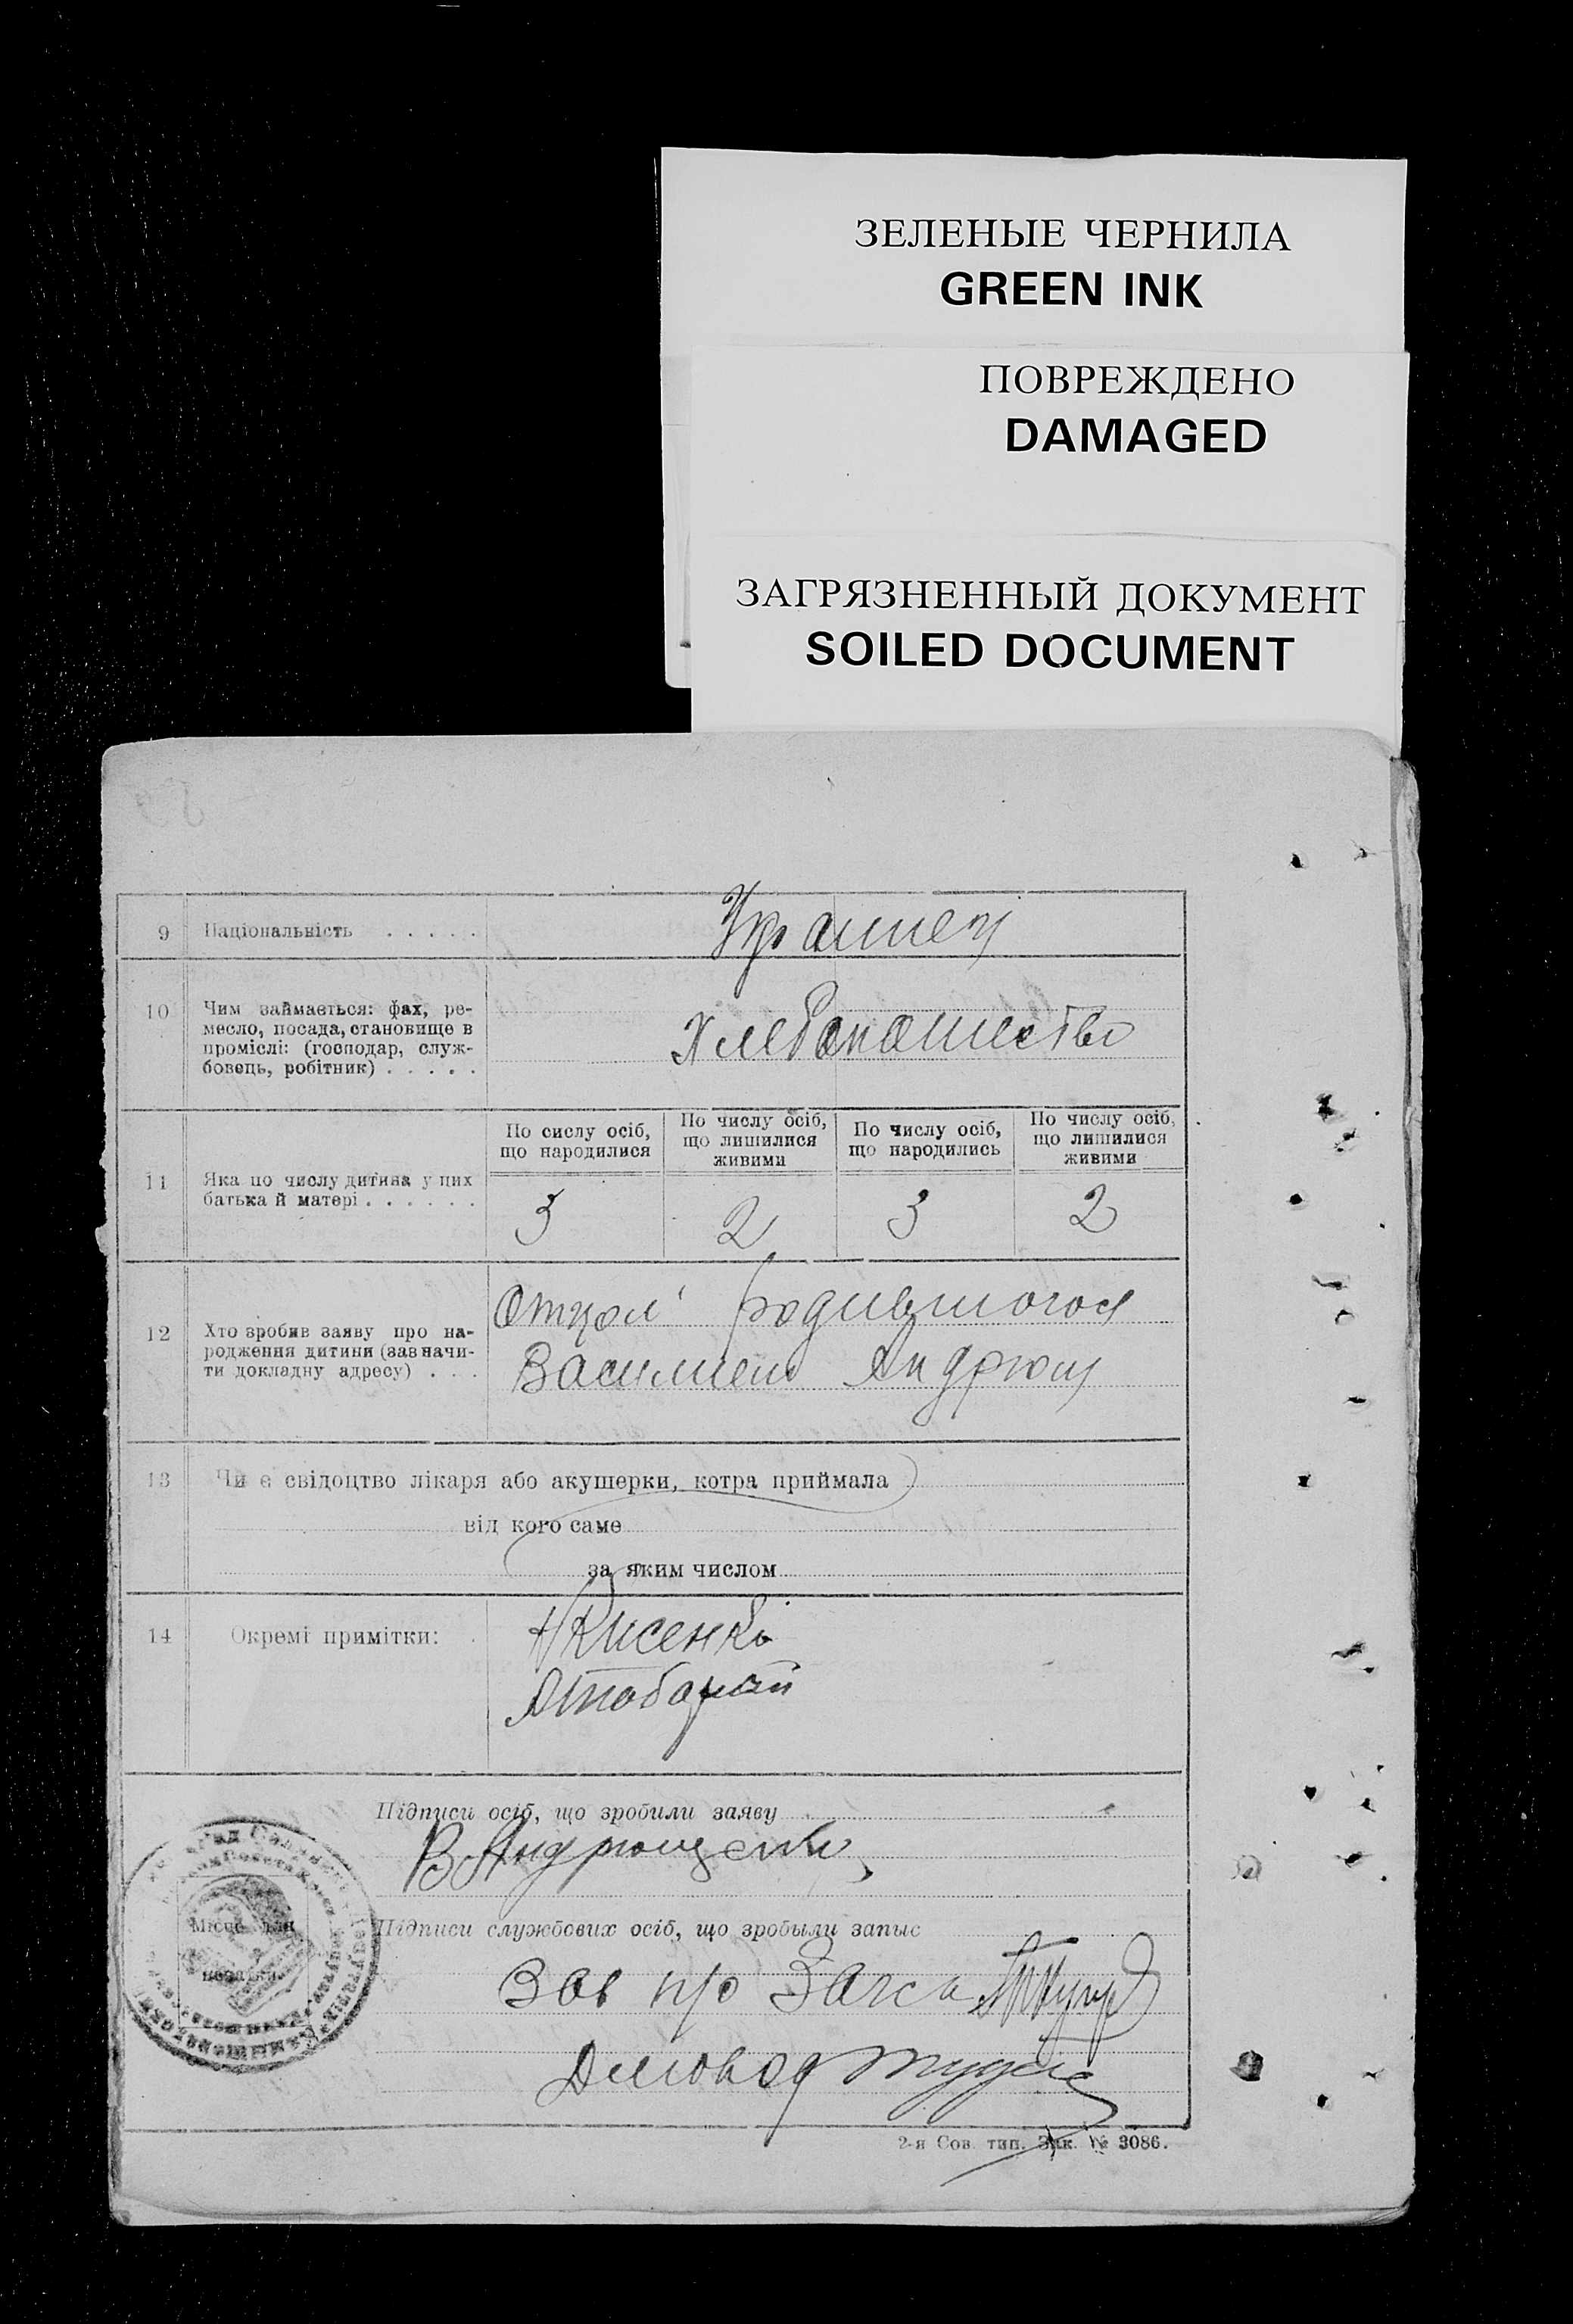 ЗЕЛЕНЫЕ ЧЕРНИЛА
GREEN INK
ПОВРЕЖДЕНО
DAMAGED
ЗАГРЯЗНЕННЫЙ ДОКУМЕНТ
SOILED DOCUMENT
9 Національність . . . . .
10 Чим займається: фах, ре-
месло, посада, становище в
проміслі: (господар, служ-
бовець, робітник) . . . . .
Хлебопашество
11 Яка по числу дитина у цих
батька й матері . . . . . .
По сислу осіб,
що народилися
По числу осіб,
що лишилися
живими
По числу осіб,
що народились
По числу осіб,
що лишилися
живими
3 2 3 2
12 Хто зробив заяву про на-
родження дитини (зазначи-
ти докладну адресу) . . .
Отцом родившогося
Василием Андрющ
13 Чи є свідоцтво лікаря або акушерки, котра приймала
від кого саме
за яким числом
14 Окремі примітки:
Підписи осіб, що зробили заяву
В Андрющенко
Місце для
печатки
Підписи службових осіб, що зробыли запыс
Зав п/о Загса
Деловод
2-я Сов. тип. Зак. № 3086.